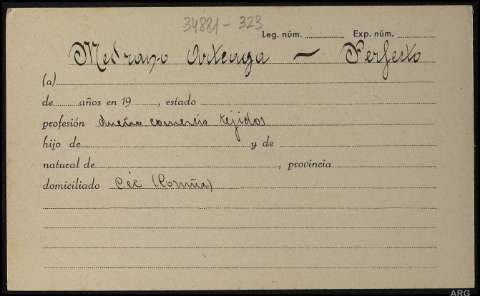 34881-323
Leg. núm. Exp. núm.
Medrano Arteaga — Perfecto
(a)
de años en 19 , estado
profesión dueño comercio tejidos
hijo de y de
natural de , provincia
domiciliado Cée (Coruña)
ARG